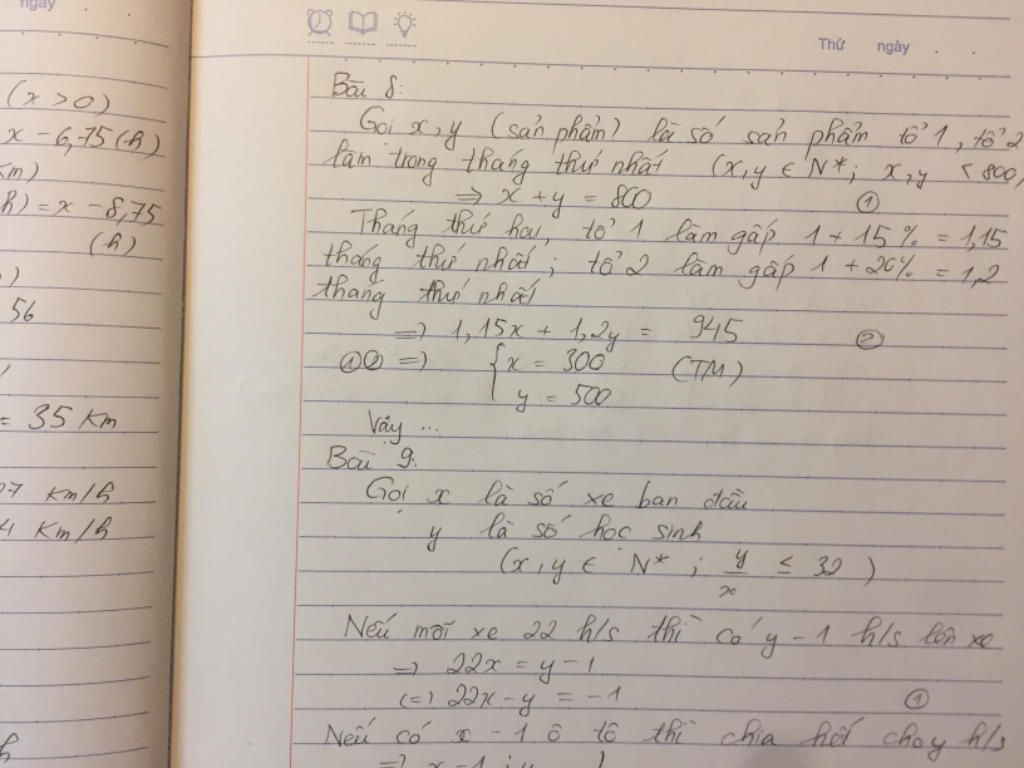 ngày
(x > 0)
x - 6,75 (h)
Km)
h) = x - 8,75
(h)
56
= 35 Km
07 Km/h
4 Km/h
Thứ ngày . .
Bài 8:
Gọi x, y (sản phẩm) là số sản phẩm tổ 1, tổ 2
làm trong tháng thứ nhất (x, y ∈ N*; x, y < 800)
=> x + y = 800 ①
Tháng thứ hai, tổ 1 làm gấp 1 + 15% = 1,15
tháng thứ nhất; tổ 2 làm gấp 1 + 20% = 1,2
tháng thứ nhất
=> 1,15x + 1,2y = 945 ②
①② => { x = 300 (TM)
y = 500
Vậy ...
Bài 9:
Gọi x là số xe ban đầu
y là số học sinh
(x, y ∈ N*; y/x ≤ 32)
Nếu mỗi xe 22 h/s thì có y - 1 h/s lên xe
=> 22x = y - 1
(=) 22x - y = -1 ①
Nếu có x - 1 ô tô thì chia hết cho y h/s